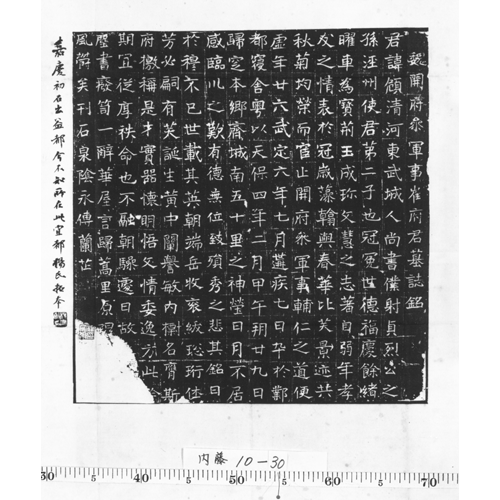 魏開府參軍事崔府君墓誌銘
君諱頠清河東武城人尚書僕射貞烈公之
孫涇州使君第二子也冠冕世德福慶餘緒
曜車為寶荊玉成珎文慧之志著自弱年孝
友之情表於冠歲藻翰與春華比芳景迹共
秋菊均榮而官止開府參軍事輔仁之道便
虛年廿六武定六年七月遘疾七日卒於鄴
都寢舍粵以天保四年二月甲午朔廿九日
歸窆本鄉齊城南五十里之神塋日月不居
感臨川之歎有德無位致殞秀之悲其銘曰
於穆不已世載其英朝端岳牧袞紱珩佳
芳必嗣有芙誕生黃中闡譽敏內摛名齊斯
府檄稱是才實器懷明悟文情委逸方此
期冝從厚秩命也不融朝驂遽日故
壑書癈笥一辭華屋言歸蒿里原
風翳芙刊石泉陰永傳蘭芷
嘉慶初石出益都今不知所在此宣都楊氏拓本
內藤 10-30
30 5 40 5 50 5 60 5 70